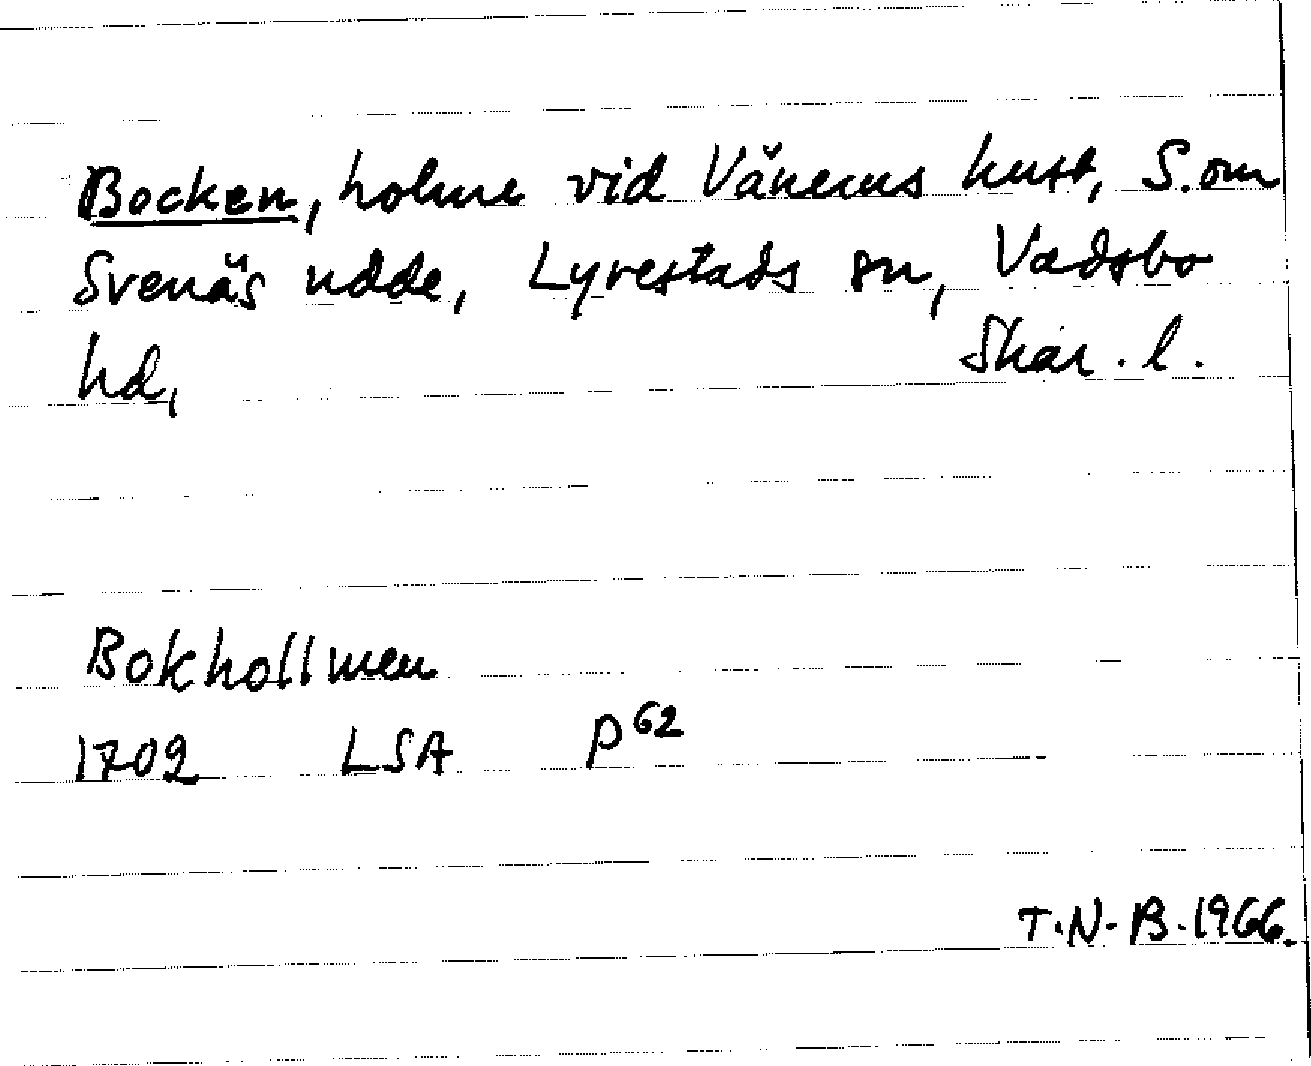 Bocken, holme vid Vänerns kust, S. om
Svenäs udde, Lyrestads sn, Vadsbo
hd, Skar. l.
Bokhollmen
1702 LSA P62
T.N-B.1966.